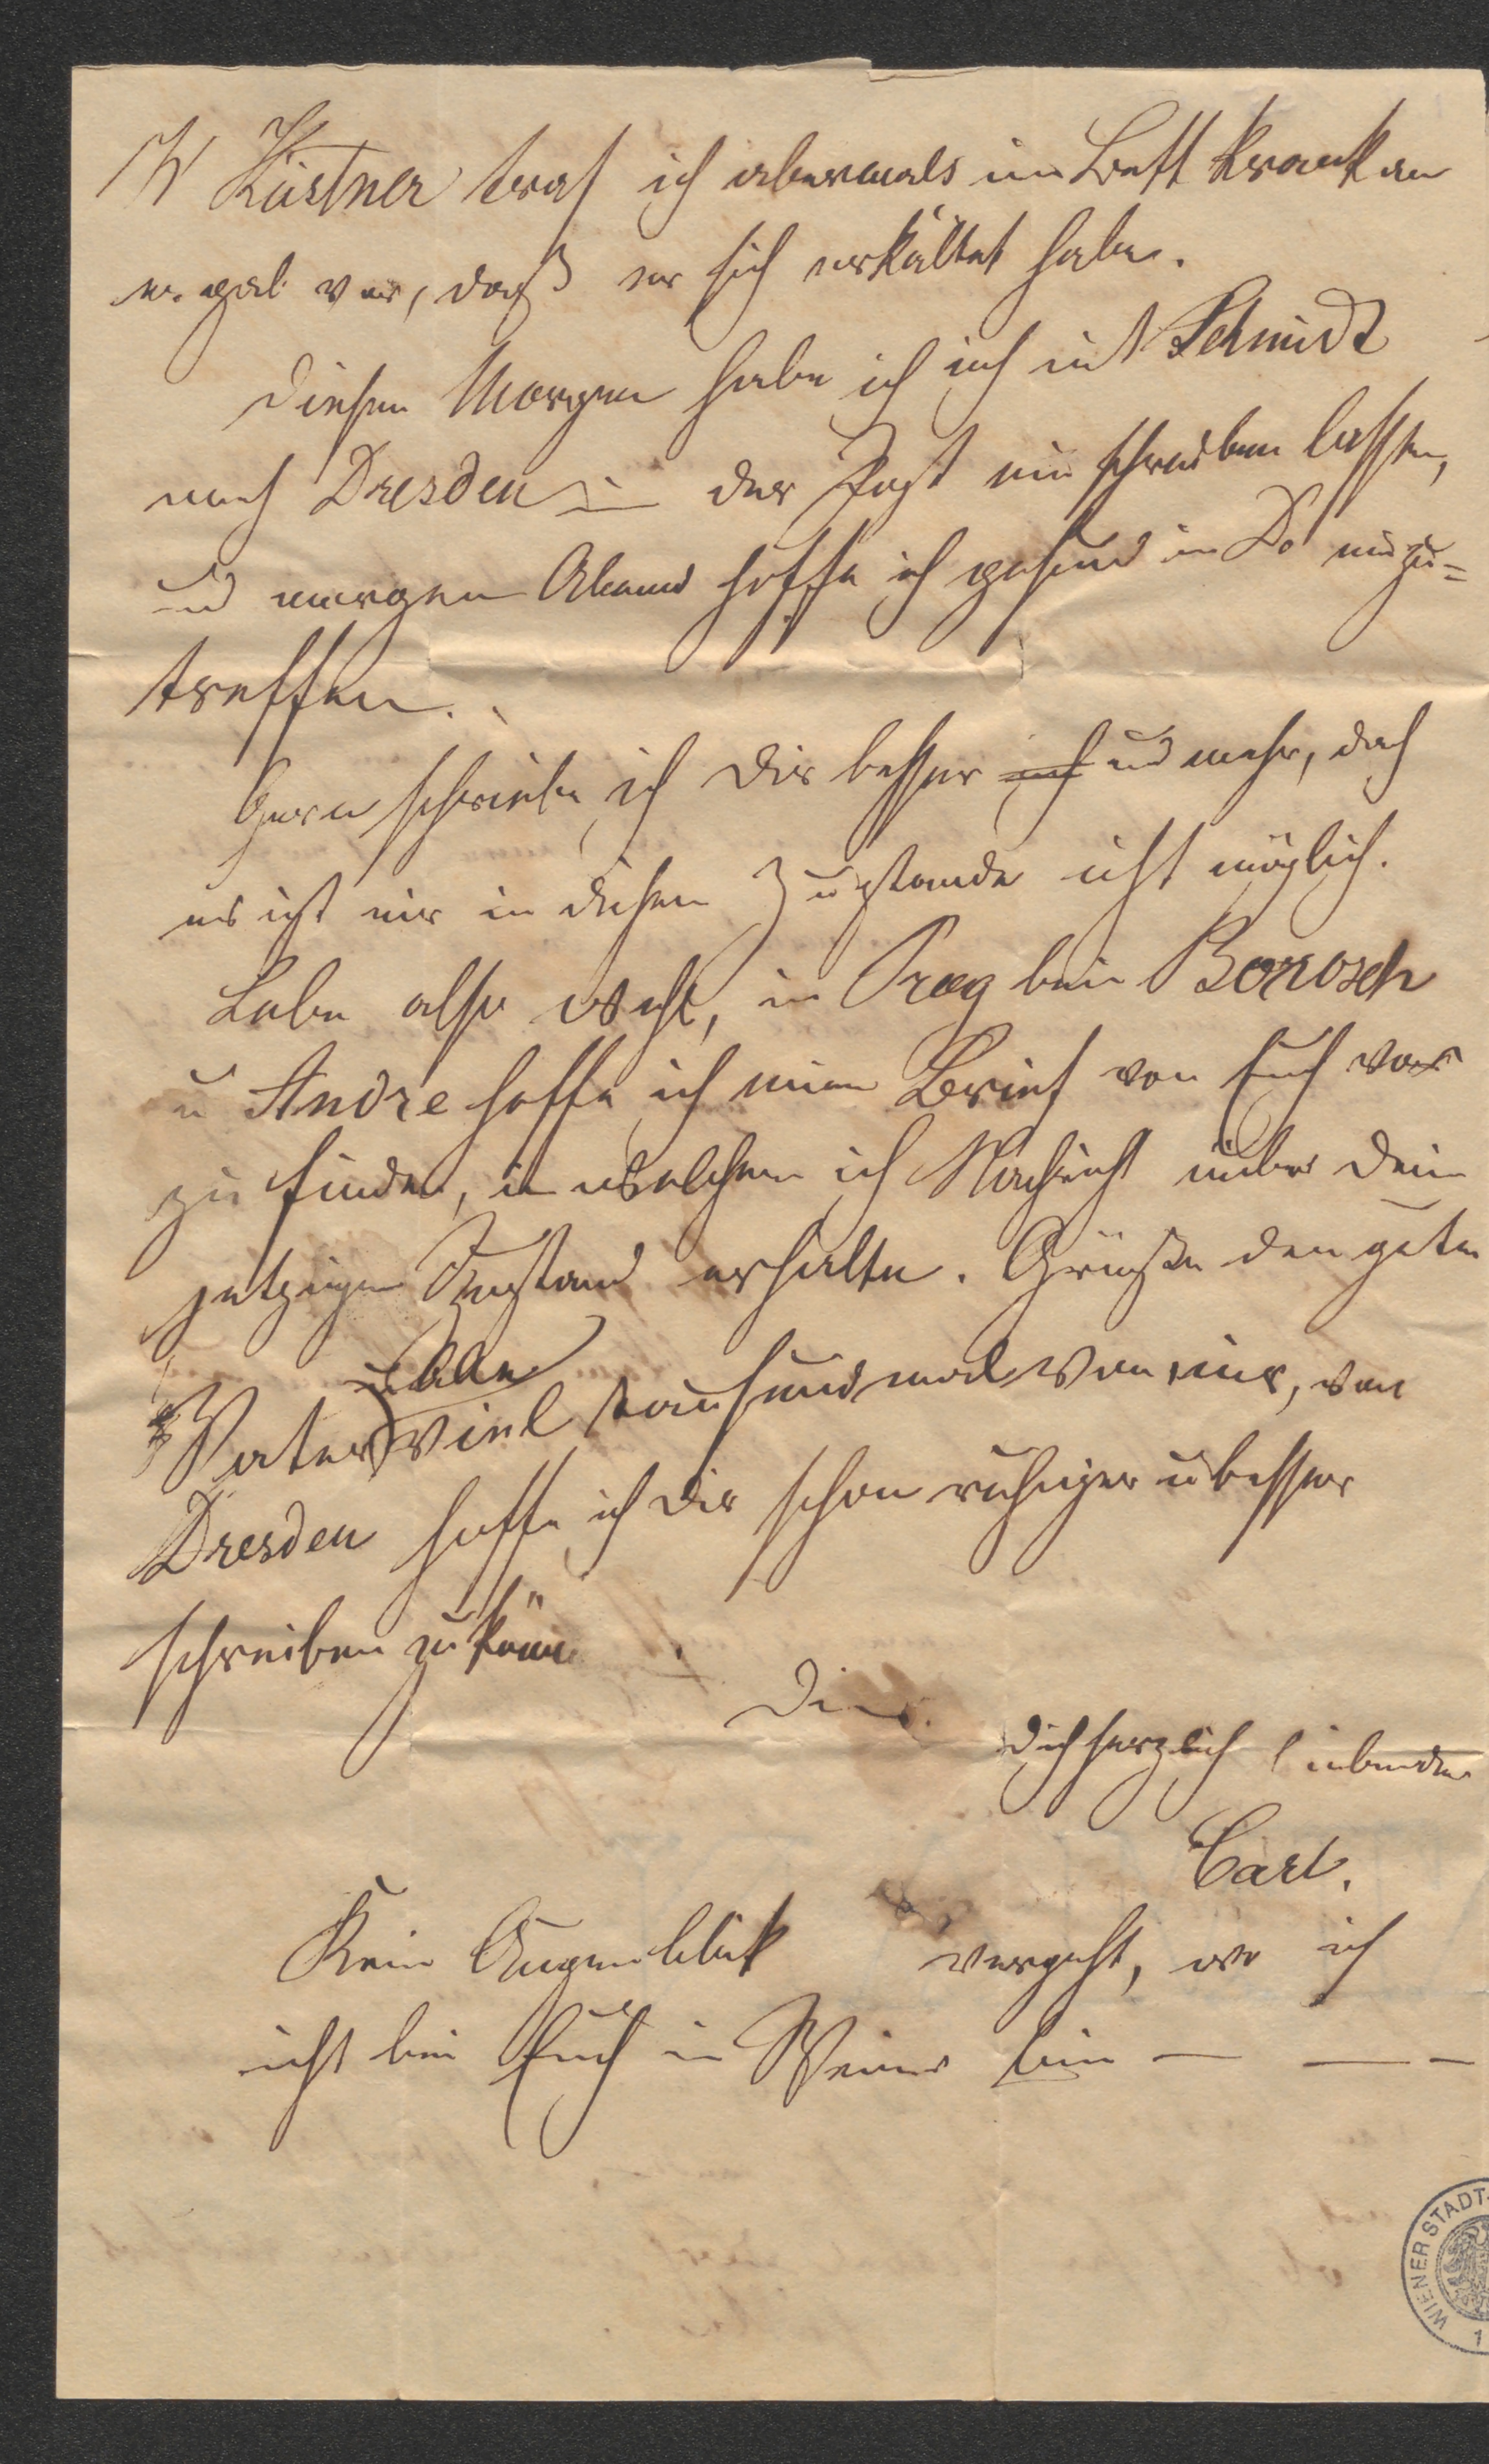 H Küstner traf ich abermals im Bett krank an
er gab vor, daß er sich erkältet habe.
Diesen Morgen habe ich mich mit Schmidt
nach Dresden in der Post einschreiben lassen,
und morgen Abend hoffe ich gesund in Do einzu=
treffen.
Gern schriebe ich dir besser und mehr, doch
es ist mir in diesem Zustande nicht möglich.
Lebe also wohl, in Prag bei Borrosch
u Andre hoffe ich einen Brief von Euch vor
zu finden, in welchem ich Nachricht über Dein
jetzigen Zustand erhalte. Grüße den guten
u Alle
Vater viel tausendmal von mir, von
Dresden hoffe ich dir schon ruhiger u besser
schreiben zu könn
Dein
dich herzlich liebender
Carl.
Kein Augenblick vergeht, wo ich
nicht bei Euch in Weimar bin — — —
WIENER STADT-
1